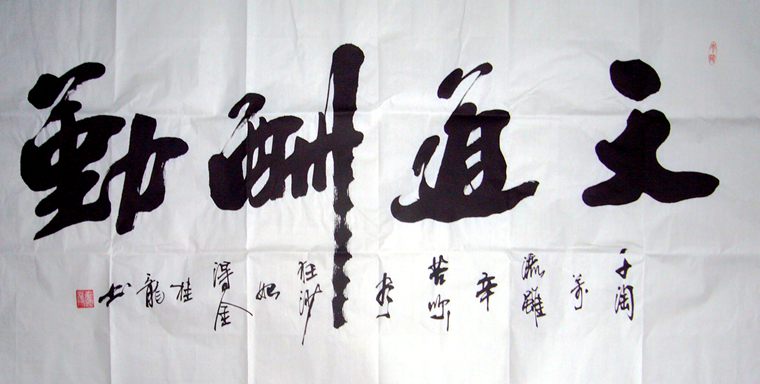 天道酬勤
千淘
萬
漉雖
辛
苦吹
尽
狂沙
始
得金
桂
龍
书